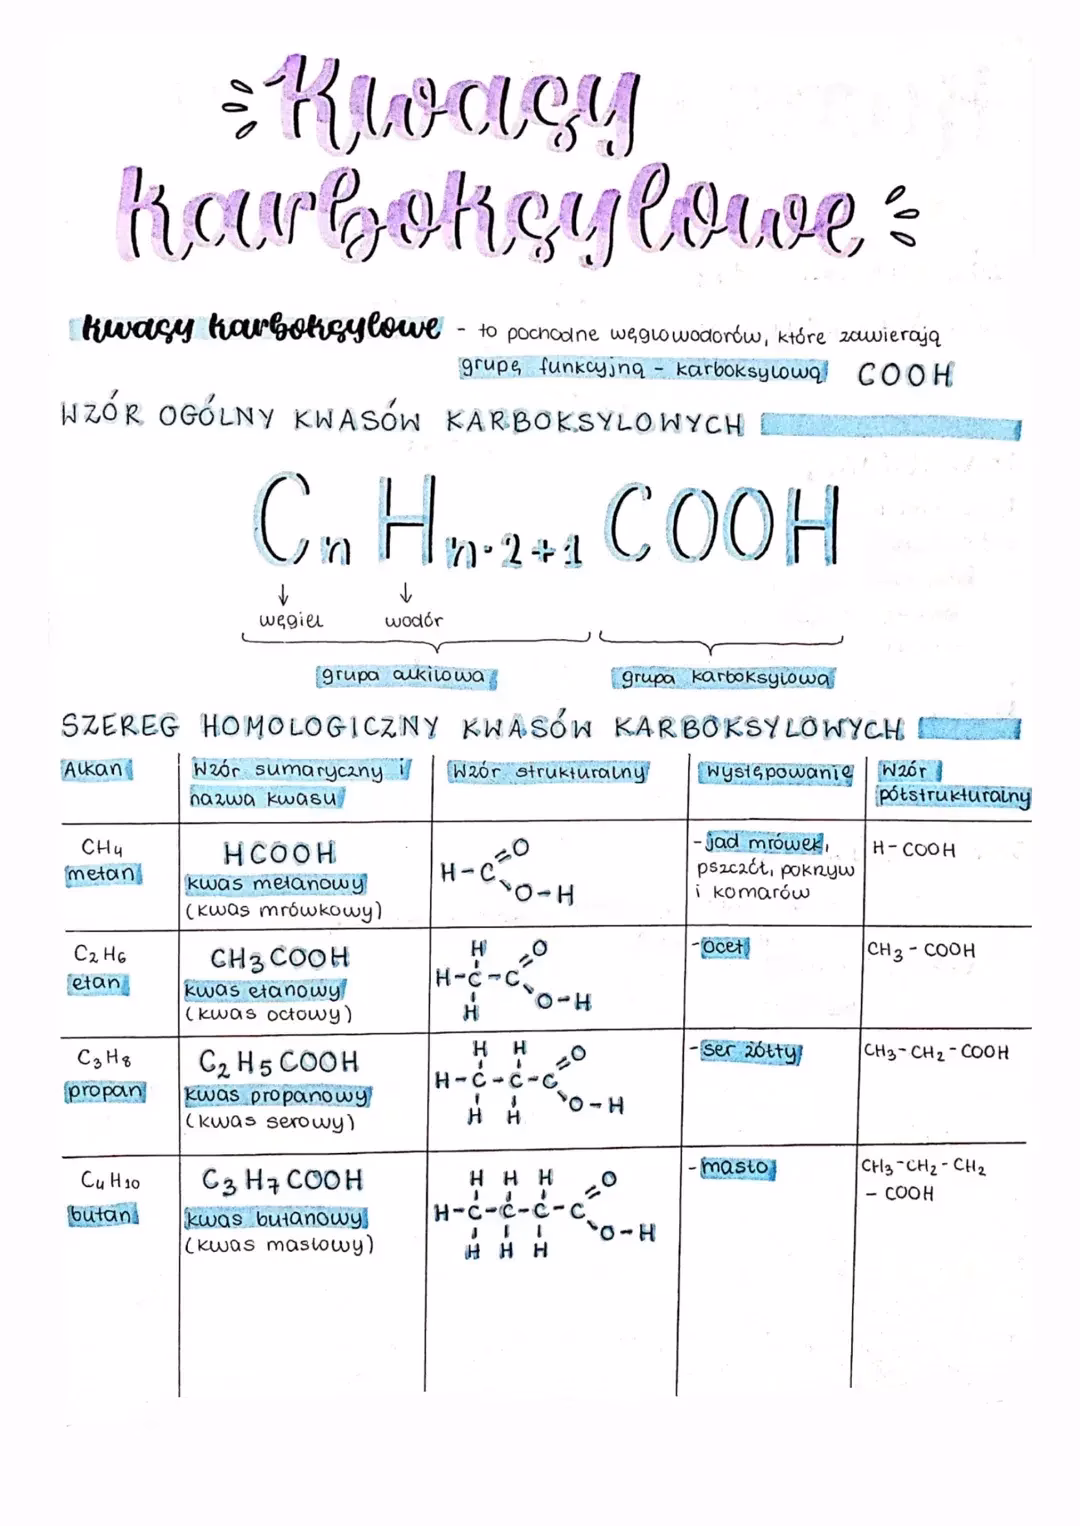 Kwasy
karboksylowe
kwasy karboksylowe - to pochodne węglowodorów, które zawierają
grupę funkcyjną - karboksylową COOH
WZÓR OGÓLNY KWASÓW KARBOKSYLOWYCH
Cn Hn·2+1 COOH
↓ ↓
węgiel wodór
grupa alkilowa grupa karboksylowa
SZEREG HOMOLOGICZNY KWASÓW KARBOKSYLOWYCH
Alkan
Wzór sumaryczny i
nazwa kwasu
Wzór strukturalny
Występowanie
Wzór
półstrukturalny
CH4
metan
HCOOH
kwas metanowy
(kwas mrówkowy)
H-C=O
O-H
-jad mrówek,
pszczół, pokrzyw
i komarów
H-COOH
C2H6
etan
CH3COOH
kwas etanowy
(kwas octowy)
H O
H-C-C
O-H
H
-ocet
CH3-COOH
C3H8
propan
C2H5COOH
kwas propanowy
(kwas serowy)
H H O
H-C-C-C
O-H
H H
-ser żółty
CH3-CH2-COOH
C4H10
butan
C3H7COOH
kwas butanowy
(kwas masłowy)
H H H O
H-C-C-C-C
O-H
H H H
-masło
CH3-CH2-CH2
-COOH